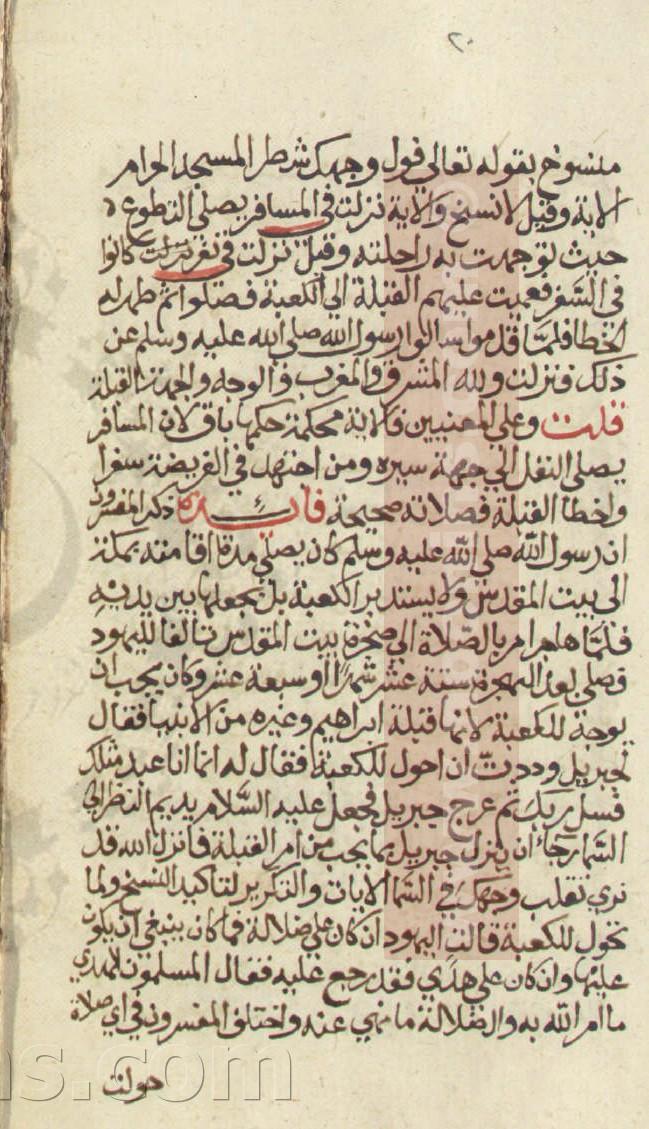 ٢٠
منسوخ بقوله تعالى فول وجهك شطر المسجد الحرام
الاية وقيل لا نسخ والاية نزلت في المسافر يصلي التطوع
حيث توجهت به راحلته وقيل نزلت في نفر نزلت كانوا
في السفر فعميت عليهم القبلة الى الكعبة فصلوا ثم ظهر له
الخطا فلما قدموا سالوا رسول الله صلى الله عليه وسلم عن
ذلك فنزلت ولله المشرق والمغرب والوجه والجهة القبلة
قلت وعلى المعنيين فالاية محكمة حكمها باق لان المسافر
يصلي النفل الى جهة سيره ومن اجتهد في الفريضة سفرا
واخطا القبلة فصلاته صحيحة فائدة ذكر المفسرون
ان رسول الله صلى الله عليه وسلم كان يصلي مدة اقامته بمكة
الى بيت المقدس ولا يستدبر الكعبة بل يجعلها بين يديه
فلما هاجر امر بالصلاة الى صخرة بيت المقدس تالفا لليهود
فصلى بعد الهجرة ستة عشر شهرا او سبعة عشر وكان يحب ان
يوجه للكعبة لانها قبلة ابراهيم وغيره من الانبيا فقال
لجبريل وددت ان احول للكعبة فقال له انما انا عبد مثلك
فسل ربك ثم عرج جبريل فجعل عليه السلام يديم النظر الى
السما رجاء ان ينزل جبريل بما يحب من امر القبلة فانزل الله قد
نرى تقلب وجهك في السما الايات والتكرير لتاكيد النسخ ولما
تحول للكعبة قالت اليهود ان كان على ضلالة فما كان ينبغي ان يكون
عليها وان كان على هدي فقد رجع عليه فقال المسلمون الهدي
ما امر الله به والضلالة ما نهي عنه واختلف المفسرون في اي صلاة
حولت
ns.com